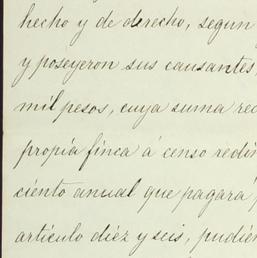 hecho y de derecho, segun
y poseyeron sus causantes,
mil pesos, cuya suma rec
propia finca á censo redi
ciento anual que pagará
artículo diéz y seis, pudién